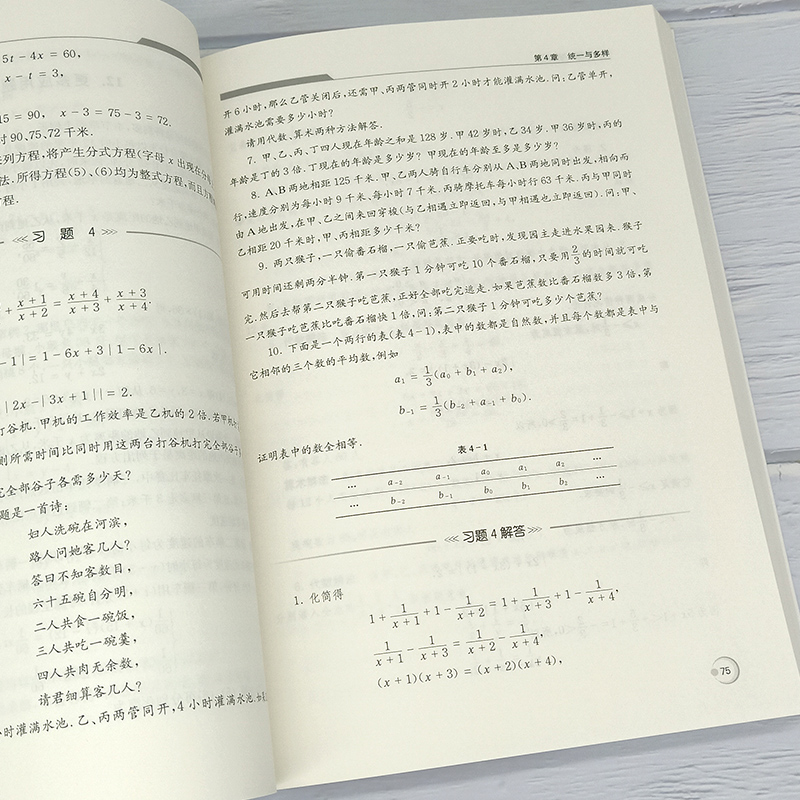 5t－4x＝60，
x－t＝3，
15＝90， x－3＝75－3＝72.
时90、75、72千米.
列方程，将产生分式方程(字母x出现在分
法. 所得方程(5)、(6)均为整式方程，而且方
程.
习 题 4
+ \frac{x+1}{x+2} = \frac{x+4}{x+3} + \frac{x+3}{x+4}.
－1|＝1－6x＋3|1－6x|.
|2x－|3x＋1||＝2.
打谷机. 甲机的工作效率是乙机的2倍. 若甲机
则所需时间比同时用这两台打谷机打完全部谷子
完全部谷子各需多少天?
题是一首诗:
妇人洗碗在河滨，
路人问她客几人?
答曰不知客数目，
六十五碗自分明，
二人共食一碗饭，
三人共吃一碗羹，
四人共肉无余数，
请君细算客几人?
小时灌满水池. 乙、丙两管同开，4小时灌满水池.
第4章 统一与多样
开6小时，那么乙管关闭后，还需甲、丙两管同时开2小时才能灌满水池. 问:乙管单开，
灌满水池需要多少小时?
请用代数、算术两种方法解答.
7. 甲、乙、丙、丁四人现在年龄之和是128岁. 甲42岁时，乙34岁. 甲36岁时，丙的
年龄是丁的3倍. 丁现在的年龄是多少岁? 甲现在的年龄至多是多少岁?
8. A、B两地相距125千米. 甲、乙两人骑自行车分别从A、B两地同时出发，相向而
行，速度分别为每小时9千米、每小时7千米. 丙骑摩托车每小时行63千米. 丙与甲同时
由A地出发，在甲、乙之间来回穿梭(与乙相遇立即返回，与甲相遇也立即返回). 问:甲、
乙相距20千米时，甲、丙相距多少千米?
9. 两只猴子，一只偷番石榴，一只偷芭蕉. 正要吃时，发现园主走进水果园来. 猴子
可用时间还剩两分半钟. 第一只猴子1分钟可吃10个番石榴，只要用\frac{2}{3}的时间就可吃
完. 然后去帮第二只猴子吃芭蕉，正好全部吃完逃走. 如果芭蕉数比番石榴数多3倍，第
一只猴子吃芭蕉比吃番石榴快1倍，问:第二只猴子1分钟可吃多少个芭蕉?
10. 下面是一个两行的表(表4-1)，表中的数都是自然数，并且每个数都是表中与
它相邻的三个数的平均数，例如
a₁ = \frac{1}{3}(a₀ + b₁ + a₂)，
b₋₁ = \frac{1}{3}(b₋₂ + a₋₁ + b₀).
证明表中的数全相等.
表4-1
… a₋₂ a₋₁ a₀ a₁ a₂ …
… b₋₂ b₋₁ b₀ b₁ b₂ …
习题4解答
1. 化简得
1 + \frac{1}{x+1} + 1 - \frac{1}{x+2} = 1 + \frac{1}{x+3} + 1 - \frac{1}{x+4}，
\frac{1}{x+1} - \frac{1}{x+3} = \frac{1}{x+2} - \frac{1}{x+4}，
(x+1)(x+3) = (x+2)(x+4)，
75